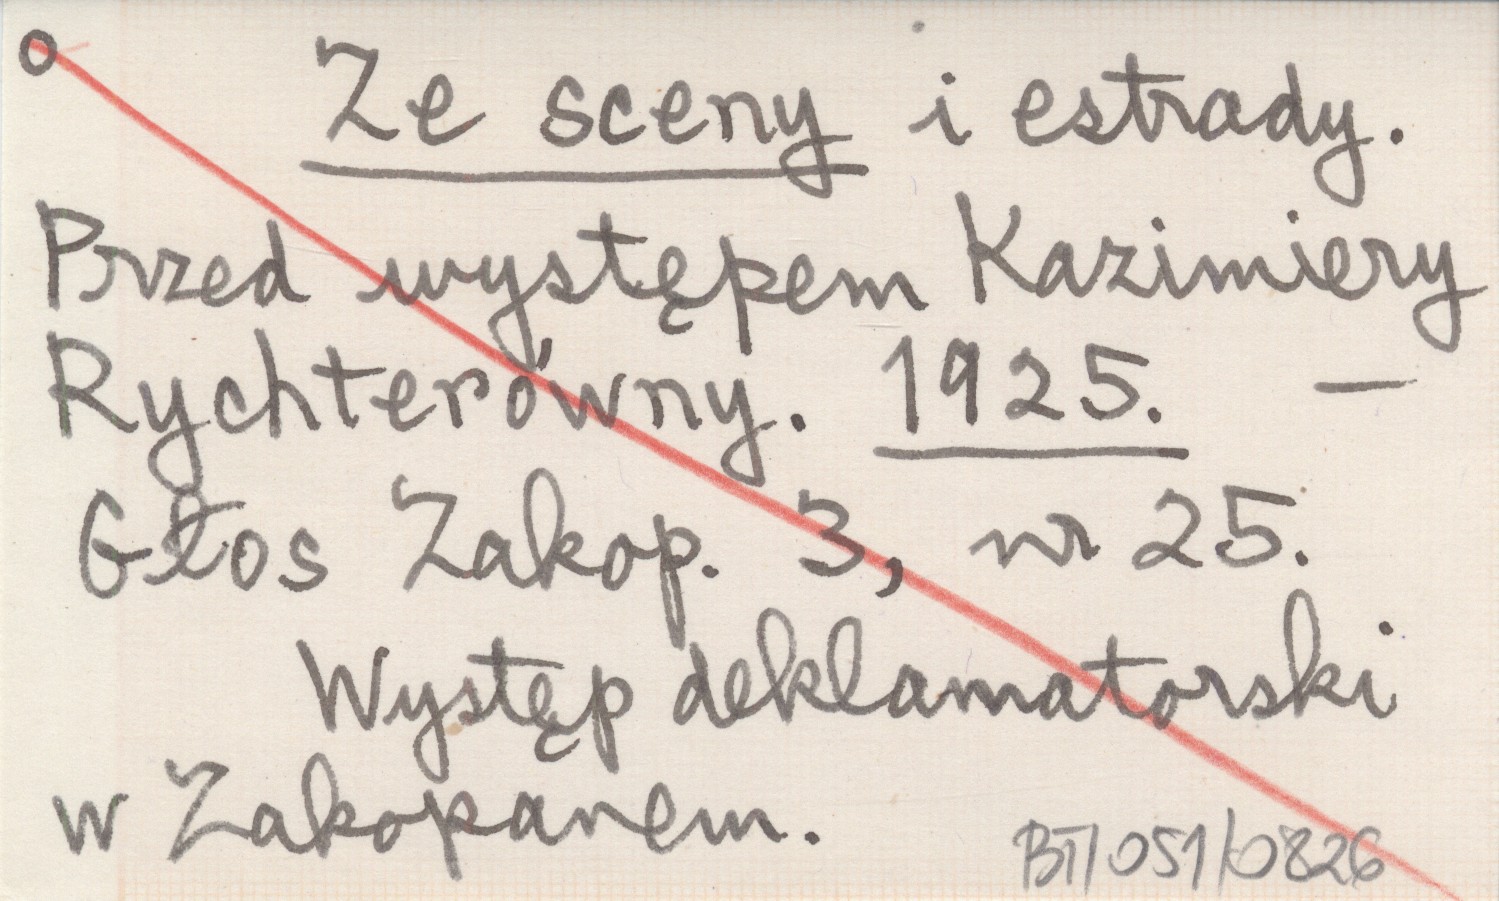 o
Ze sceny i estrady.
Przed występem Kazimiery
Rychterówny. 1925. —
Głos Zakop. 3, nr 25.
Występ deklamatorski
w Zakopanem.
BT/051/0826